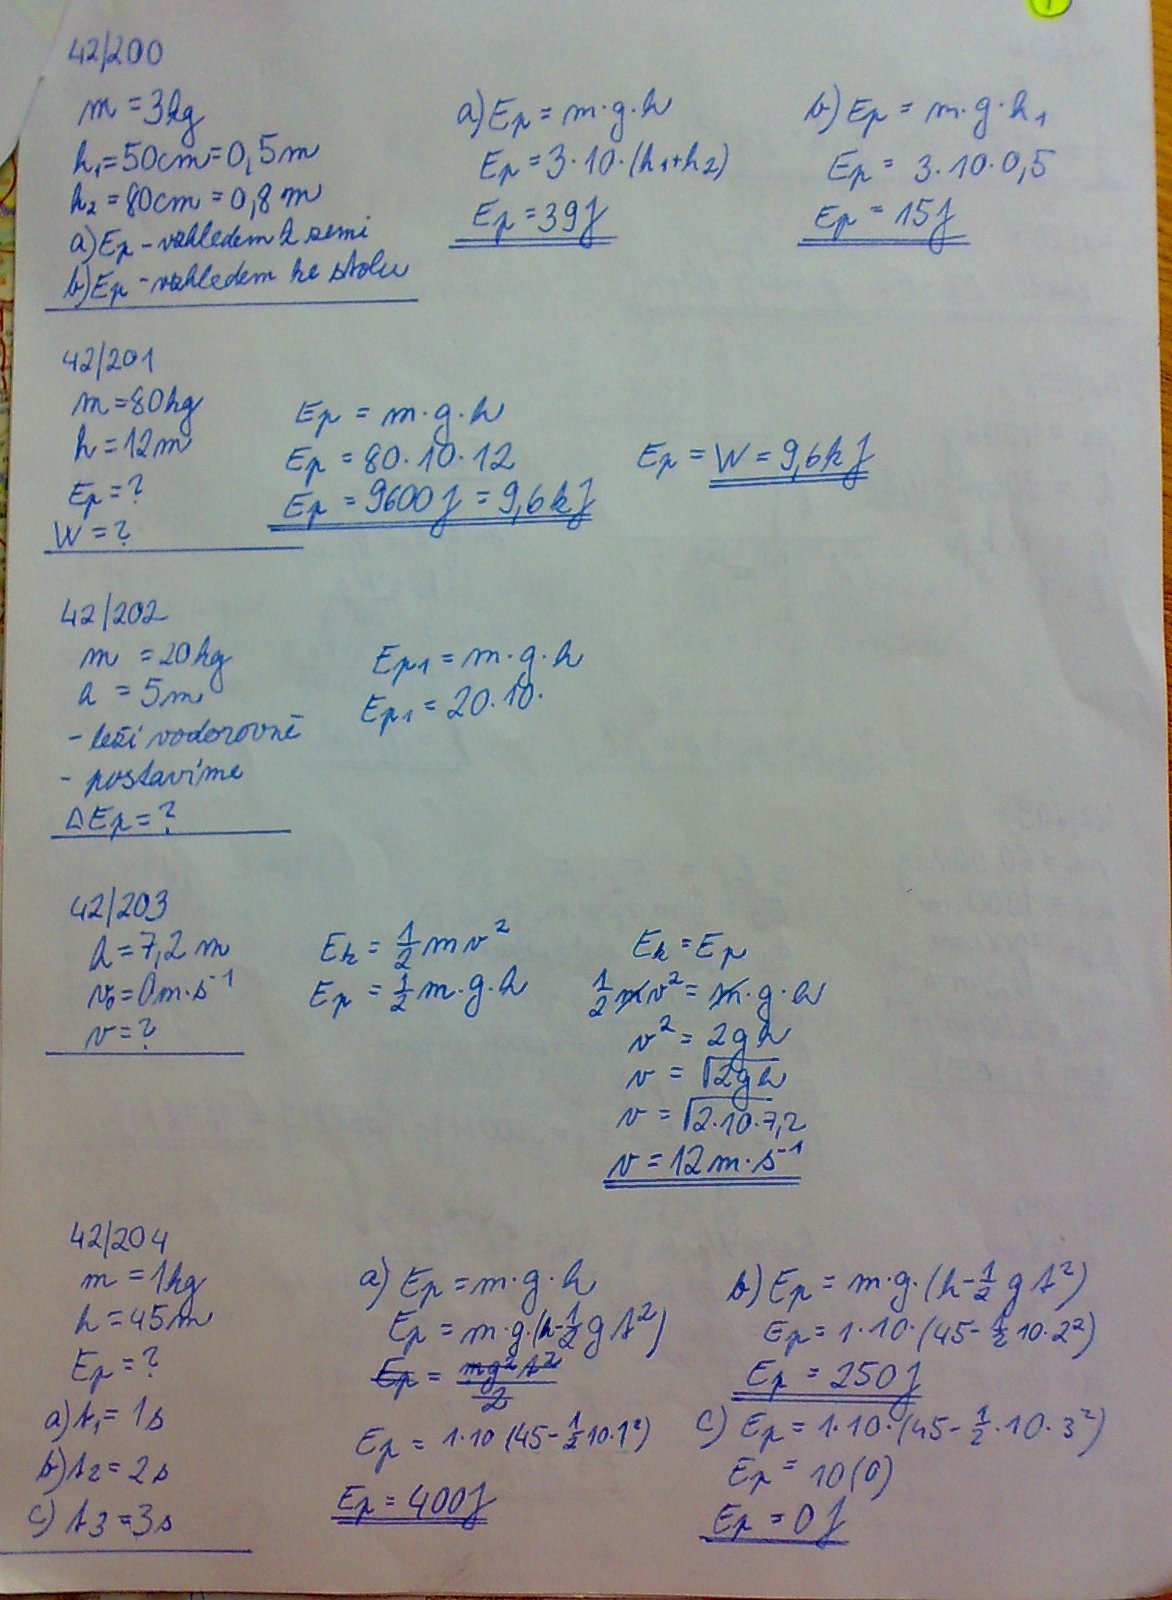 42/200
m = 3kg
h₁=50cm=0,5m
h₂=80cm=0,8m
a) Ep - vzhledem k zemi
b) Ep - vzhledem ke stolu
a) Ep = m·g·h
Ep = 3·10·(h₁+h₂)
Ep = 39J
b) Ep = m·g·h₁
Ep = 3·10·0,5
Ep = 15J
42/201
m = 80kg
h = 12m
Ep = ?
W = ?
Ep = m·g·h
Ep = 80·10·12
Ep = 9600J = 9,6kJ
Ep = W = 9,6kJ
42/202
m = 20kg
h = 5m
- leží vodorovně
- postavíme
ΔEp = ?
Ep₁ = m·g·h
Ep₁ = 20·10·
42/203
h = 7,2m
v₀ = 0m·s⁻¹
v = ?
Ek = 1/2 mv²
Ep = 1/2 m·g·h
Ek = Ep
1/2 mv² = m·g·h
v² = 2gh
v = √2gh
v = √2·10·7,2
v = 12m·s⁻¹
42/204
m = 1kg
h = 45m
Ep = ?
a) t₁ = 1s
b) t₂ = 2s
c) t₃ = 3s
a) Ep = m·g·h
Ep = m·g·(h-1/2 g t²)
Ep = mg²t²/2
Ep = 1·10 (45-1/2 10·1²)
Ep = 400J
b) Ep = m·g·(h-1/2 g t²)
Ep = 1·10·(45-1/2 10·2²)
Ep = 250J
c) Ep = 1·10·(45-1/2·10·3²)
Ep = 10(0)
Ep = 0J